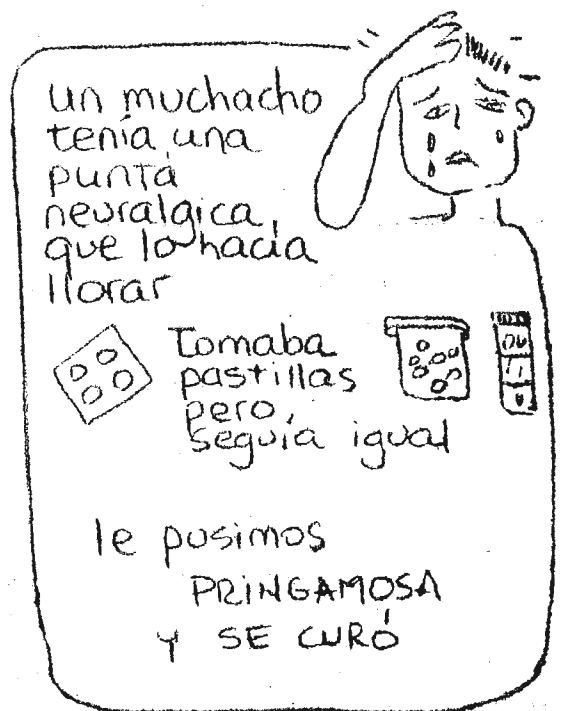 un muchacho
tenía una
punta
neuralgica
que lo hacía
llorar
Tomaba
pastillas
pero
seguía igual
le pusimos
PRINGAMOSA
y SE CURÓ